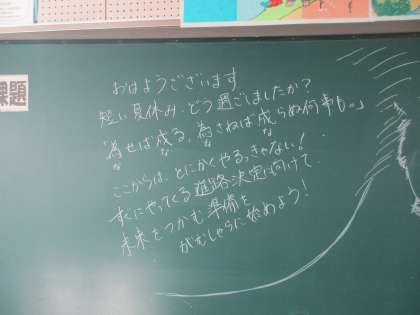 課題
おはようございます
短い夏休み、どう過ごしましたか？
「為せば成る、為さねば成らぬ何事も。」
な な な な
ここからは、とにかくやるっきゃない！
すぐにやってくる進路決定に向けて
未来をつかむ準備を
がむしゃらに始めよう！